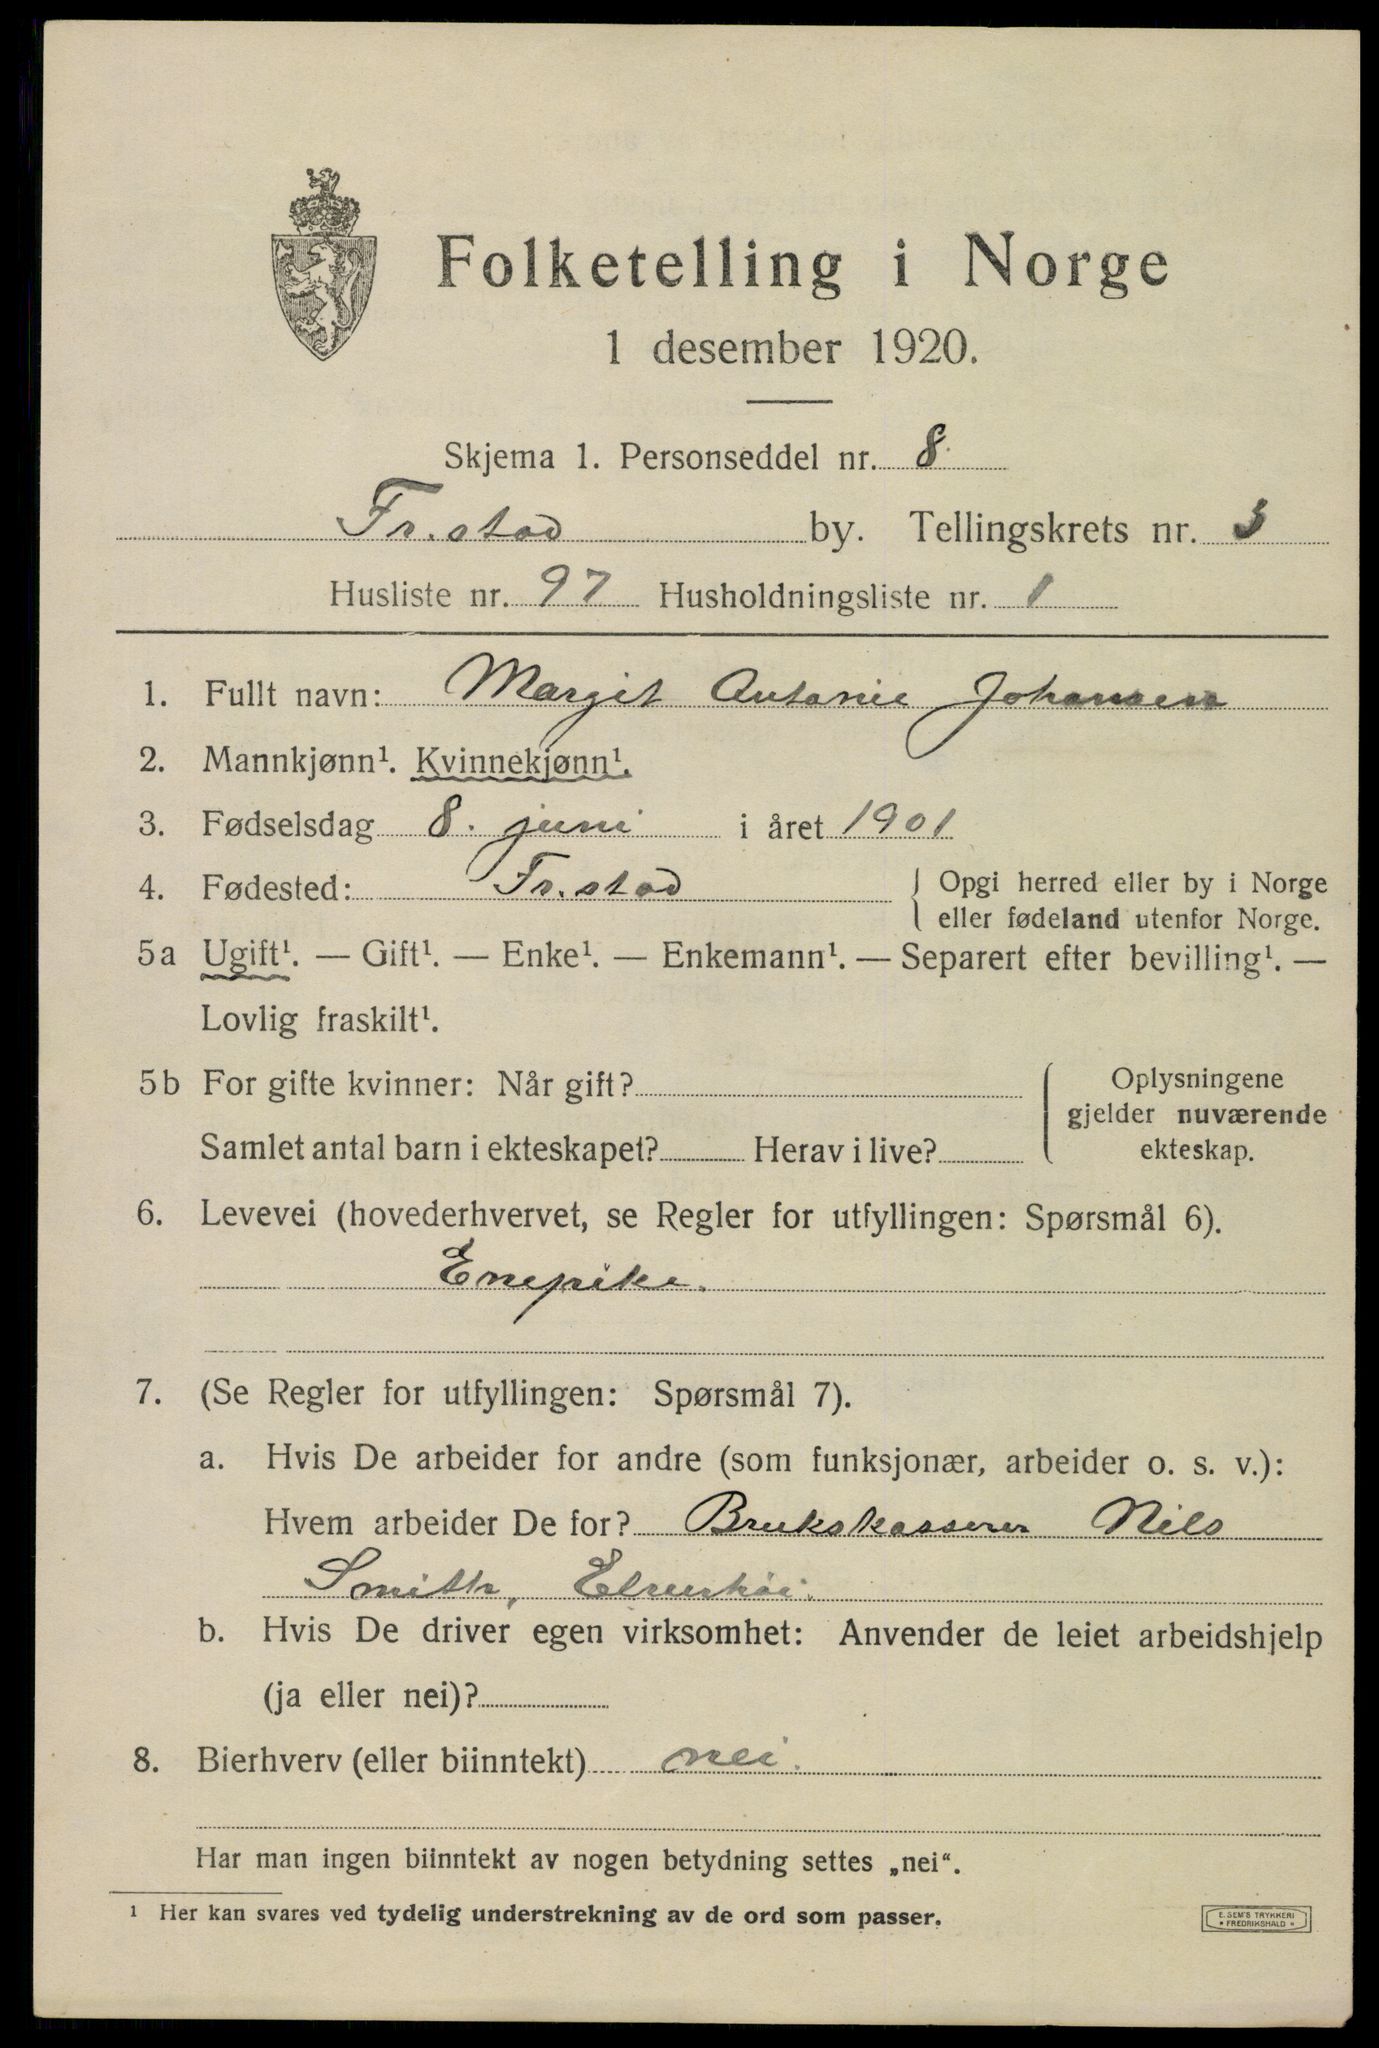 Folketelling i Norge
1 desember 1920.
Skjema 1. Personseddel nr. 8.
Fr.stad by. Tellingskrets nr. 3
Husliste nr. 97 Husholdningsliste nr. 1
1. Fullt navn: Margit Antonie Johansen
2. Mannkjønn¹. Kvinnekjønn¹.
3. Fødselsdag 8. juni i året 1901
4. Fødested: Fr.stad { Opgi herred eller by i Norge
eller fødeland utenfor Norge.
5a Ugift¹. — Gift¹. — Enke¹. — Enkemann¹. — Separert efter bevilling¹. —
Lovlig fraskilt¹.
5b For gifte kvinner: Når gift?
Samlet antal barn i ekteskapet? Herav i live?
Oplysningene
gjelder nuværende
ekteskap.
6. Levevei (hovederhvervet, se Regler for utfyllingen: Spørsmål 6).
Enepike.
7. (Se Regler for utfyllingen: Spørsmål 7).
a. Hvis De arbeider for andre (som funksjonær, arbeider o. s. v.):
Hvem arbeider De for? Brukskasserer Nils
Smith,
b. Hvis De driver egen virksomhet: Anvender de leiet arbeidshjelp
(ja eller nei)?
8. Bierhverv (eller biinntekt) nei.
Har man ingen biinntekt av nogen betydning settes „nei“.
¹ Her kan svares ved tydelig understrekning av de ord som passer.
E. SEM'S TRYKKERI
• FREDRIKSHALD •